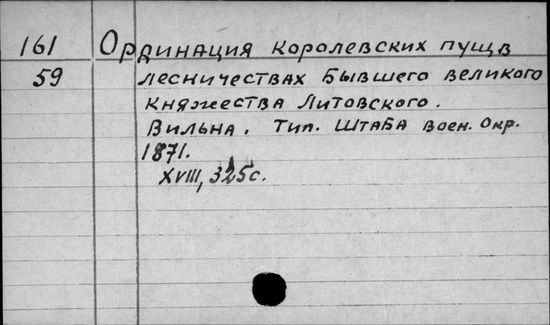 161 Ординация королевских пущ в
59 лесничествах бывшего великого
княжества Литовского.
Вильна. Тип. Штаба воен. Окр.
1871.
XVIII, 325с.